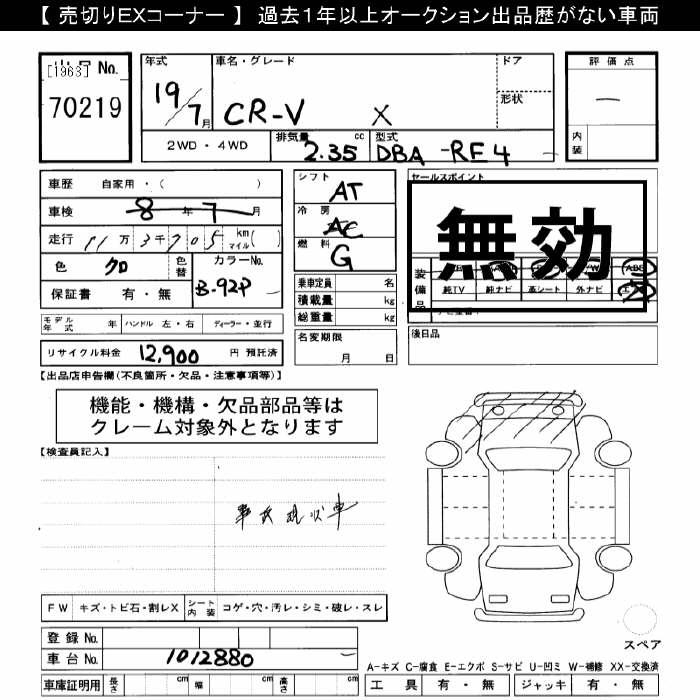 【 売切りEXコーナー 】 過去1年以上オークション出品歴がない車両
[1963] No.
70219
年式
19 7 月
車名・グレード
CR-V X
ドア
形状
評価点
一
内装
2WD・4WD
排気量 cc
2.35
型式
DBA -RE4
車歴 自家用・( )
車検 8 年 7 月
走行 11 万 3 千 705 km マイル ( )
色 クロ
色替
カラーNo.
B-92P
保証書 有・無
シフト AT
冷房 AC
燃料 G
セールスポイント
無効
装備品
純TV 純ナビ 革シート 外ナビ
乗車定員 名
積載量 kg
総重量 kg
モデル年式 年 ハンドル 左・右 ディーラー・並行
リサイクル料金 12,900 円 預託済
名変期限
月 日
後日品
【出品店申告欄(不良箇所・欠品・注意事項等)】
機能・機構・欠品部品等は
クレーム対象外となります
【検査員記入】
事故現状車
FW キズ・トビ石・割レX シート内装 コゲ・穴・汚レ・シミ・破レ・スレ
登録 No.
車台 No. 1012880
車庫証明用 長さ cm 幅 cm 高さ cm
スペア
A-キズ C-腐食 E-エクボ S-サビ U-凹ミ W-補修 XX-交換済
工具 有・無 ジャッキ 有・無